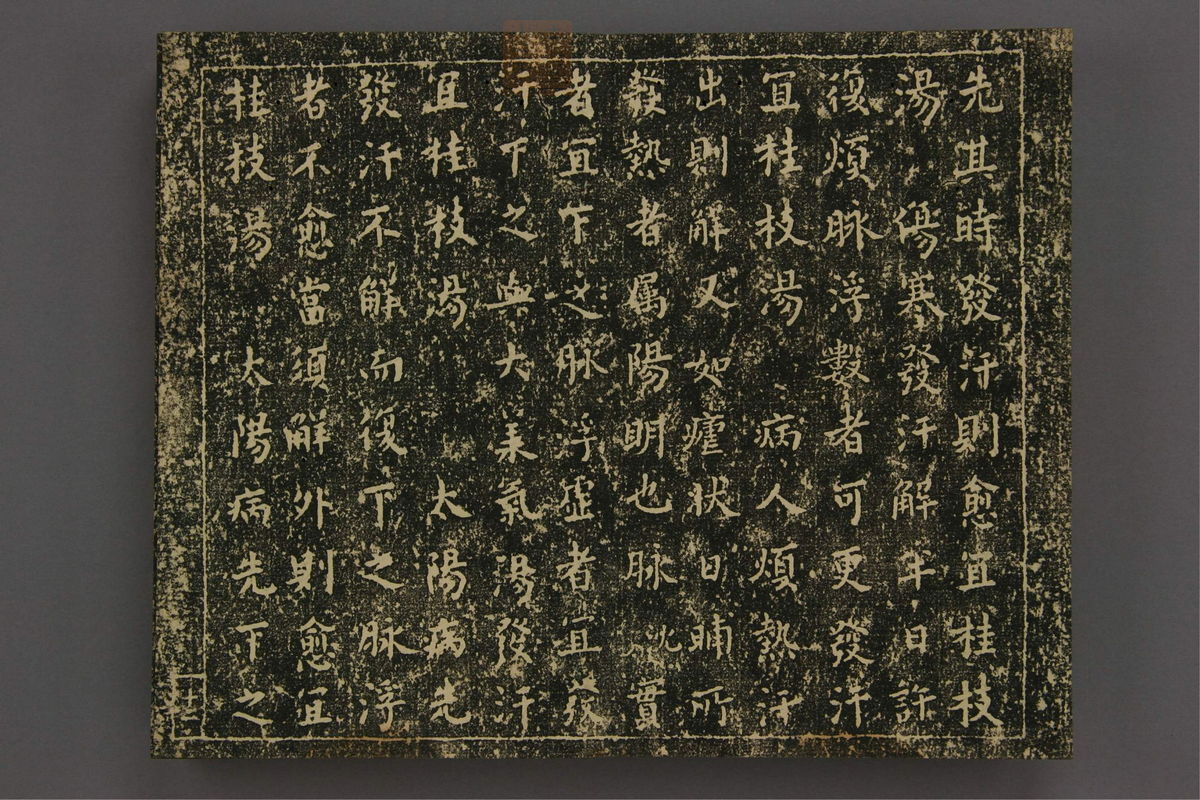 先其時發汗則愈宜桂枝
湯 傷寒發汗解半日許
復煩脉浮數者可更發汗
宜桂枝湯 病人煩熱汗
出則解又如瘧狀日晡所
發熱者属陽明也脉沈實
者宜下之脉浮虚者宜發
汗下之與大羕氣湯發汗
宜桂枝湯 太陽病先
發汗不解而復下之脉浮
者不愈當須解外則愈宜
桂枝湯 太陽病先下之